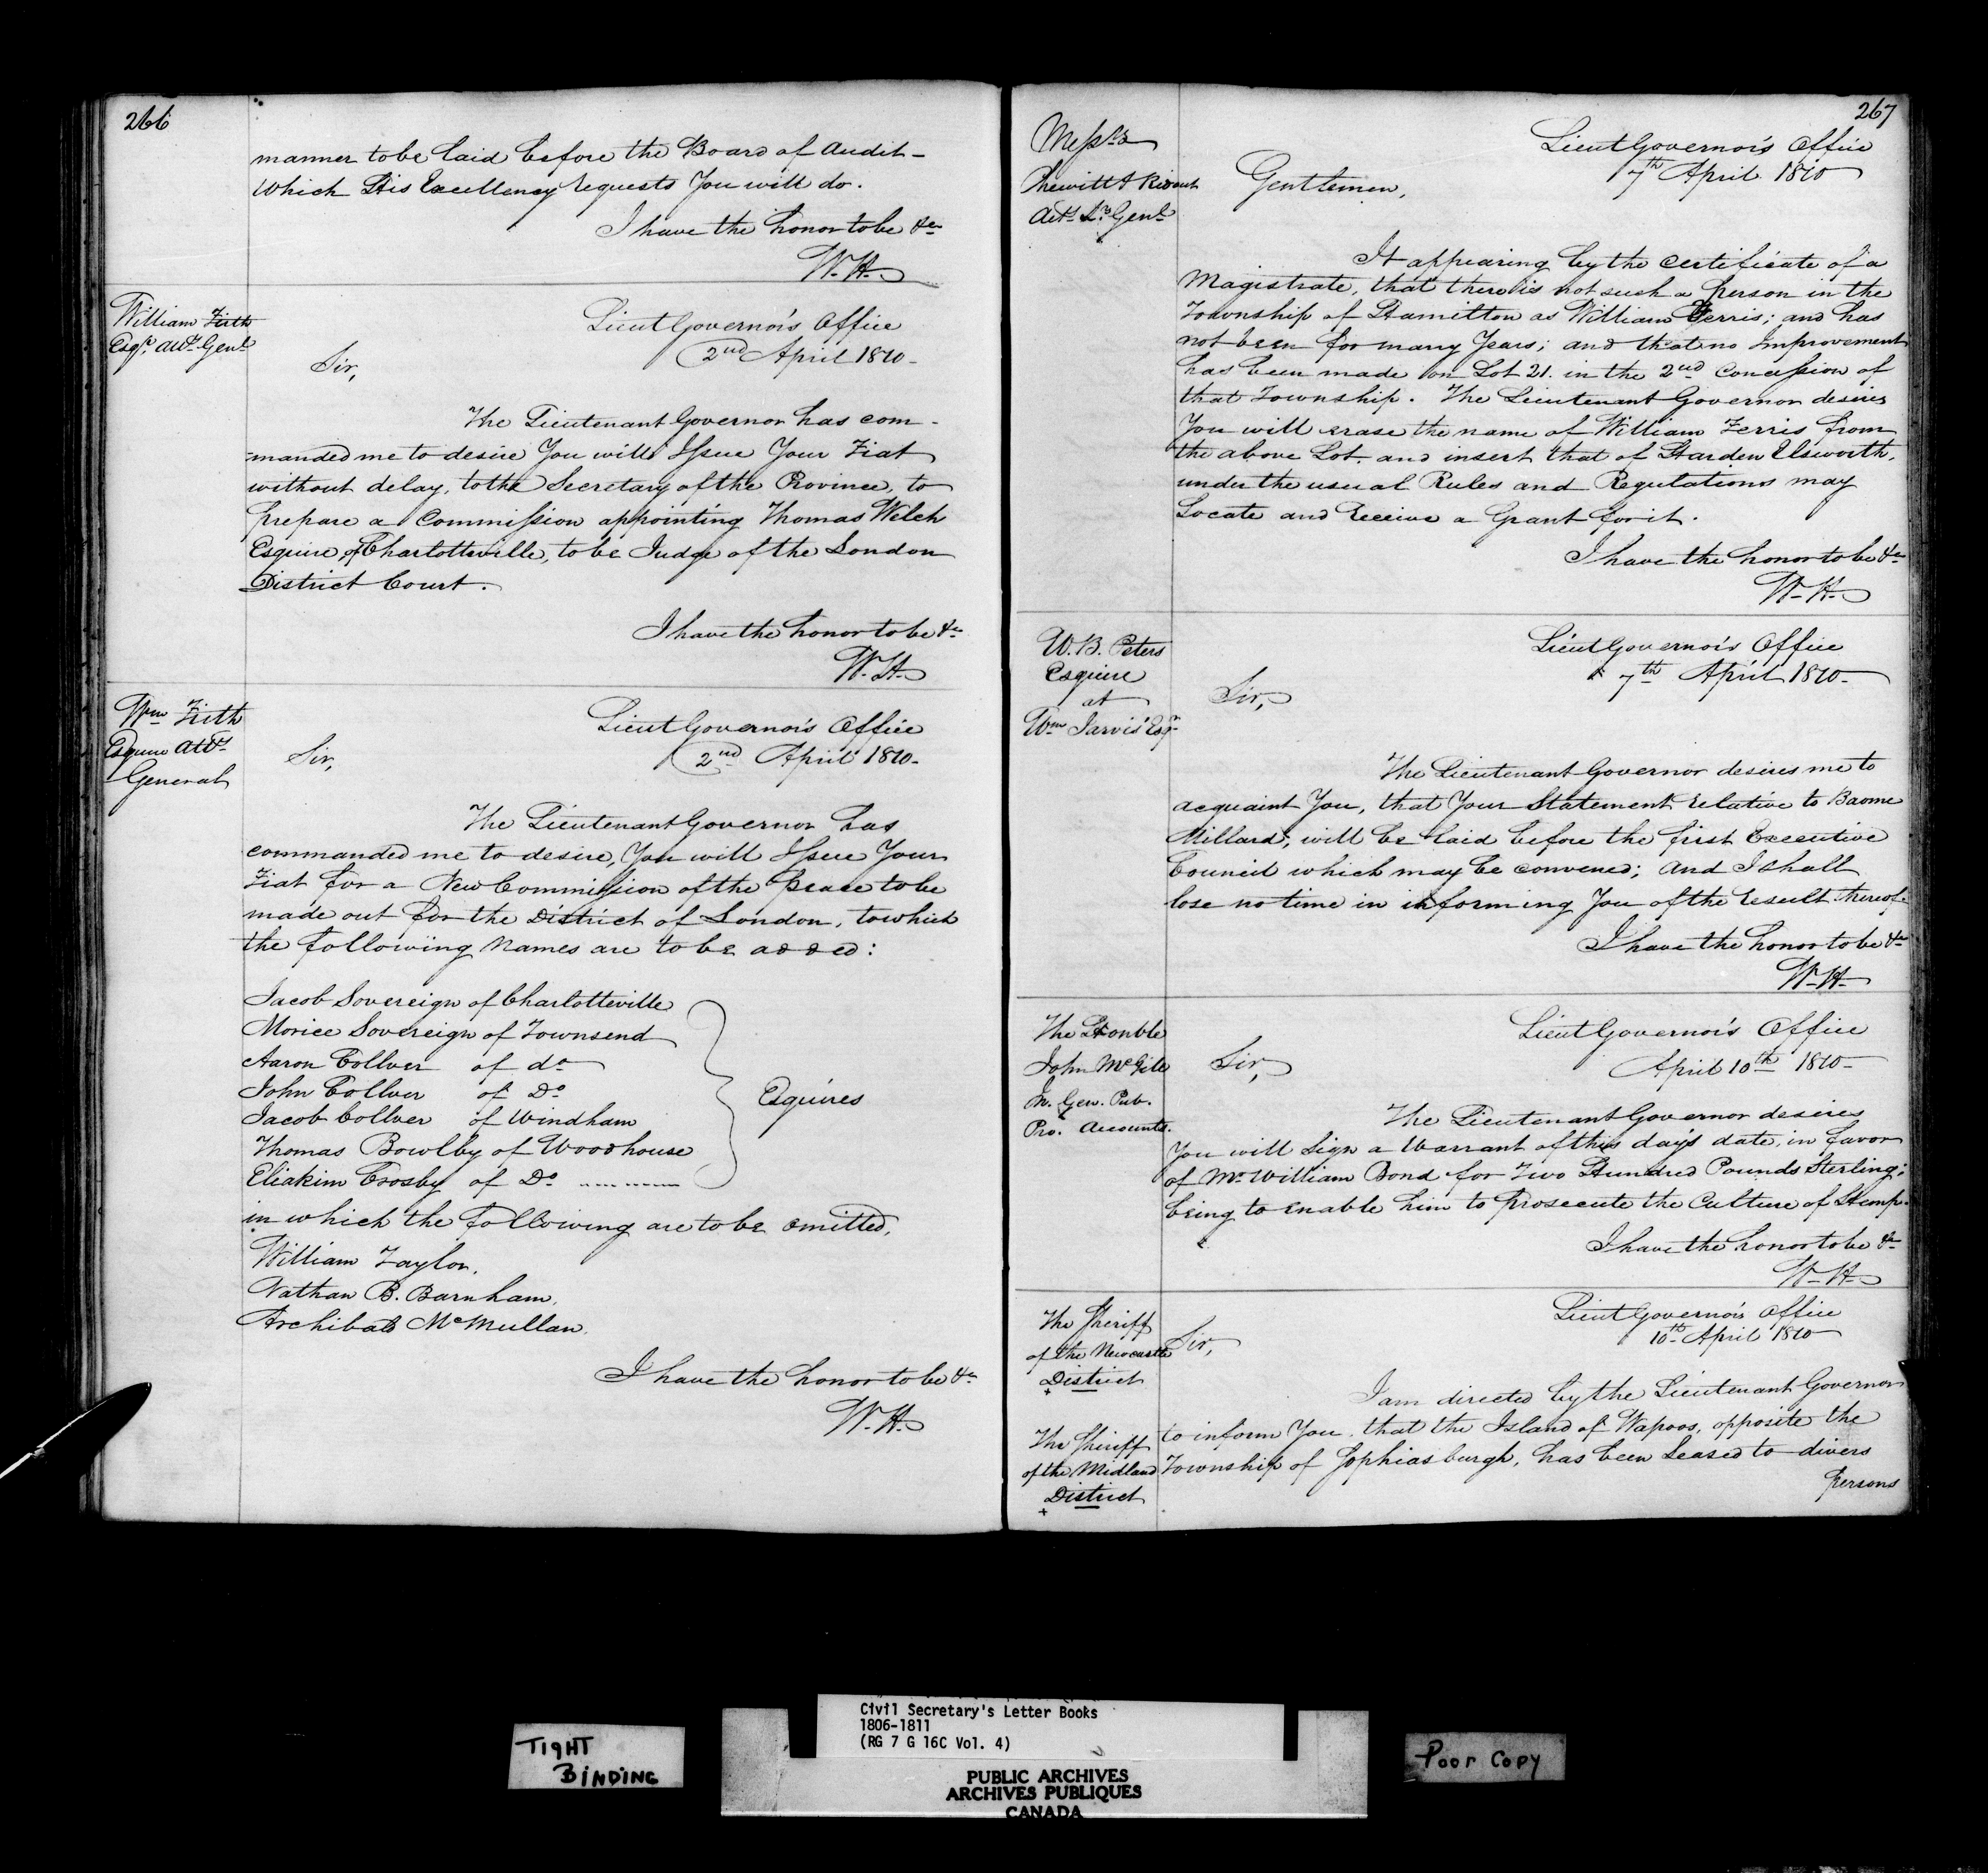 266
manner to be laid before the Board of Audit -
which His Excellency requests You will do.
I have the honor to be &c
W.H.
William Firth
Esqr. Atty. Genl.
Lieut Governor's Office
2nd April 1810-
Sir,
The Lieutenant Governor has com-
manded me to desire You will Issue Your Fiat
without delay, to the Secretary of the Province, to
prepare a Commission appointing Thomas Welch
Esquire of Charlotteville, to be Judge of the London
District Court.
I have the honor to be &c
W.H.
Wm Firth
Esquire Atty
General
Lieut Governor's Office
2nd April 1810-
Sir,
The Lieutenant Governor has
commanded me to desire, You will Issue Your
Fiat for a New Commission of the Peace to be
made out for the District of London, to which
the following Names are to be added:
Jacob Sovereign of Charlotteville
Morice Sovereign of Townsend
Aaron Collver of do
John Collver of Do
Jacob Collver of Windham
Thomas Bowlby of Woodhouse
Eliakim Crosby of Do
Esquires
in which the following are to be omitted,
William Taylor,
Nathan B. Barnham,
Archibald McMullan,
I have the honor to be &c
W.H.
267
Messrs
Chewitt & Ridout
Actg S. Genl
Lieut Governor's Office
7th April 1810
Gentlemen,
It appearing by the Certificate of a
Magistrate, that there is not such a person in the
Township of Hamilton as William Ferris; and has
not been for many Years; and that no Improvement
has been made on Lot 21. in the 2nd Concession of
that Township. The Lieutenant Governor desires
You will erase the name of William Ferris from
the above Lot. and insert that of Harden Elsworth,
under the usual Rules and Regulations may
Locate and Receive a Grant for it.
I have the honor to be &c
W.H.
W.B. Peters
Esquire
at
Wm Jarvis' Esqr
Lieut Governor's Office
7th April 1810-
Sir,
The Lieutenant Governor desires me to
acquaint You, that Your Statement relative to Baome
Millard; will be laid before the first Executive
Council which may be convened; and I shall
lose no time in informing You of the result thereof-
I have the honor to be &c
W.H.
The Honble
John McGill
In. Gen. Pub.
Pro. Accounts.
Lieut Governor's Office
April 10th 1810-
Sir,
The Lieutenant Governor desires
You will Sign a Warrant of this day's date, in favor
of Mr William Bond for Two Hundred Pounds Sterling;
being to enable him to prosecute the Culture of Hemp.
I have the honor to be &c
W.H.
The Sheriff
of the Newcastle
District
+
The Sheriff
of the Midland
District
+
Lieut Governor's Office
10th April 1810
Sir,
I am directed by the Lieutenant Governor
to inform You, that the Island of Wapoos, opposite the
Township of Sophiasburgh, has been Leased to divers
persons
TIGHT
BINDING
Civil Secretary's Letter Books
1806-1811
(RG 7 G 16C Vol. 4)
PUBLIC ARCHIVES
ARCHIVES PUBLIQUES
CANADA
Poor Copy